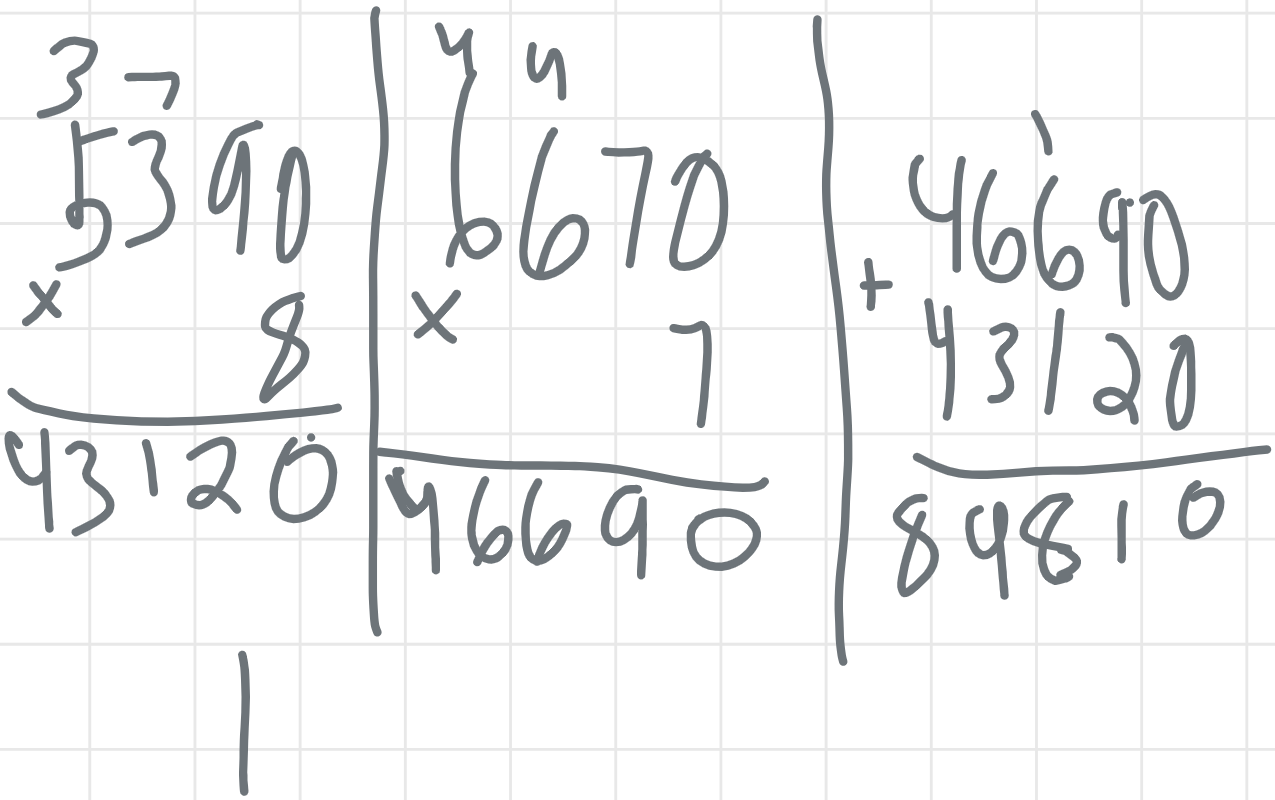 3 7
5390
x 8
43120
4 4
6670
x 7
46690
1
46690
+ 43120
84810